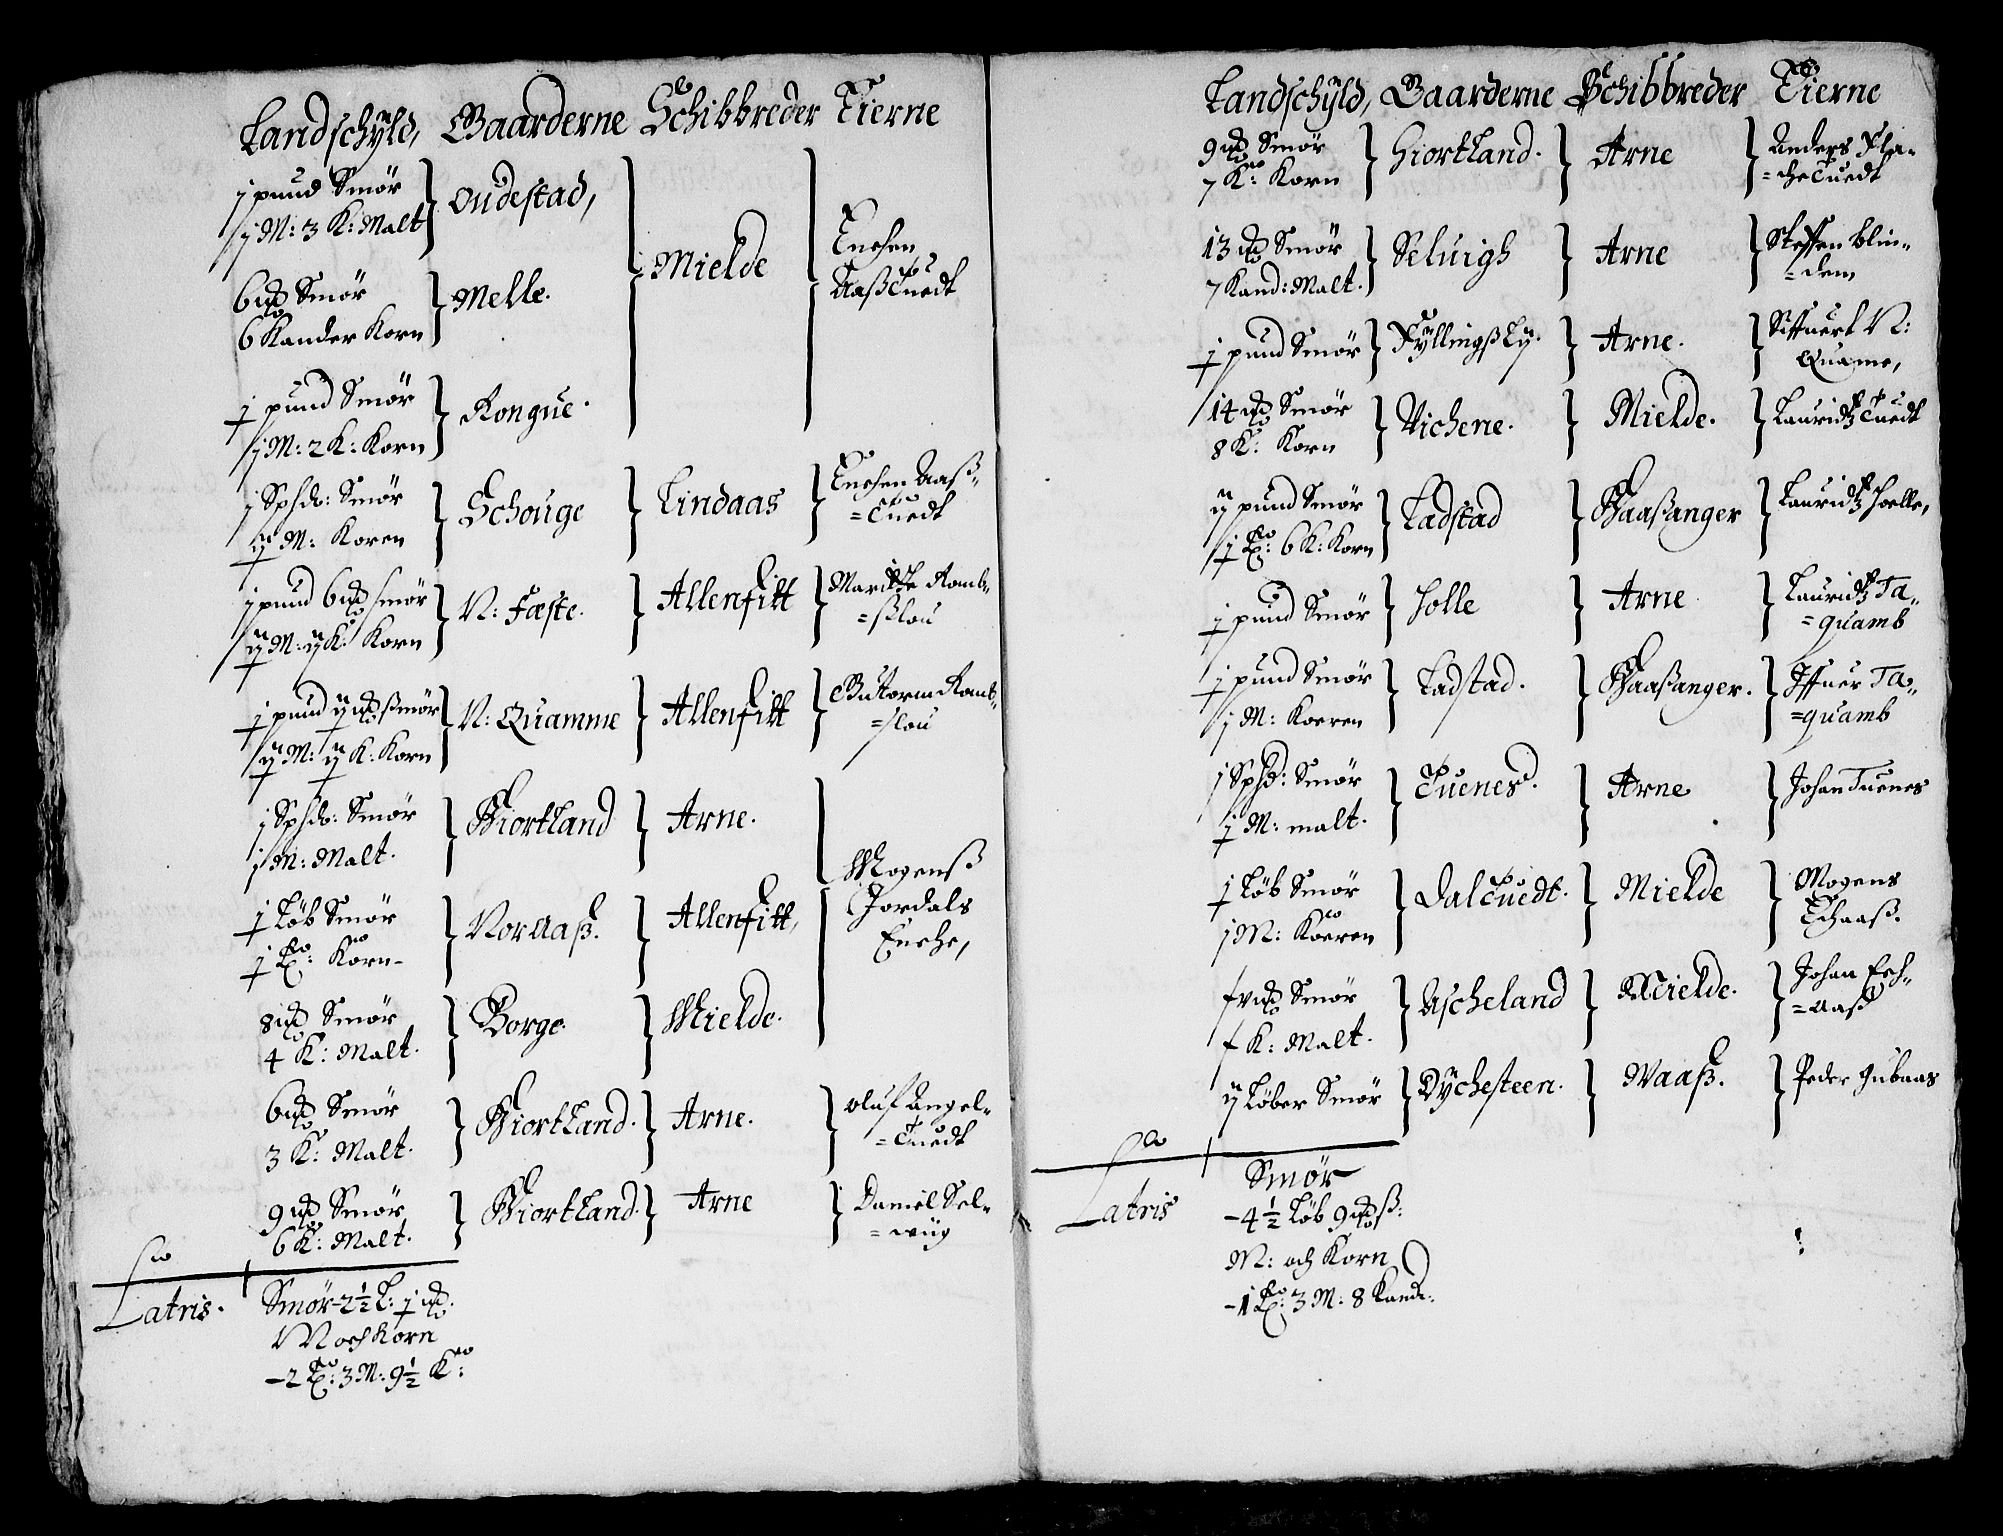 Landschyld, Gaarderne Schibbreder Eierne
j pund Smör
j M: 3 K: Malt
Oudestad,
Mielde
Enchen
Aaßtuedt
6 Smör
6 Kander Korn
Melle.
½ pund Smör
j M: 2 K: Korn
Rongue.
j Sphd: Smör
M: Koren
Schouge
Lindaas
Enchen Aaß-
=tuedt
j pund 6 smör
ij M: ij K: Korn
N: Feste.
Allenfitt
Maritte Romb-
=slou
½ pund Smör
M: K: Korn
N: Quamme
Allenfitt
Guttorm Romb-
=slou
j Sphd: Smör
j M: Malt.
Giortland
Arne.
Mogenß
Jordals
Enche,
½ Löb Smör
½ Korn-
Noruaß.
Allenfitt,
8 Smör
4 K: Malt.
Borge
Mielde.
6 Smör
3 K: Malt.
Giortland.
Arne.
Oluf Angel-
=tuedt
9 Smör
6 K: Malt.
Giortland.
Arne
Daniel Sel-
=wiig
Latris.
Smör-2½ L:
M och Korn
-2 : 3 M: 9½ K:
Landschyld, Gaarderne Schibbreder Eierne
9 Smör
7 K: Korn
Giortland.
Arne
Anders Fla-
=chetuedt
13 Smör
7 Kand: Malt.
Seluigh
Arne
Steffen blin-
=dem
½ pund Smör
Fyllingßly.
Arne.
Siffuert N:
Quame,
14 Smör
8 K: Korn
Vichene.
Mielde.
Lauridtz Tuedt
pund Smör
½ : 6 K: Korn
Ladstad
Gaaßanger
Lauridtz Hoelle,
½ pund Smör
Holle
Arne
Lauridtz Ta-
=quamb
½ pund Smör
j M: Koeren
Ladstad.
Gaaßanger.
Iffuer Ta-
=quamb
j Sphd: Smör
½ M: malt.
Tuenes.
Arne
Johan Tuenes
½ Löb Smör
j M: Koeren
Daltuedt.
Mielde
Mogens
Echaaß.
Smör
K: Malt.
Ascheland
Mielde.
Johan Ech-
=aaß
ij Löber Smör
Dychesteen.
Waaß.
Peder Gubaas
Latris
Smör
-4½ Löb 9
M: och Korn
-1 : 3 M: 8 Kand: